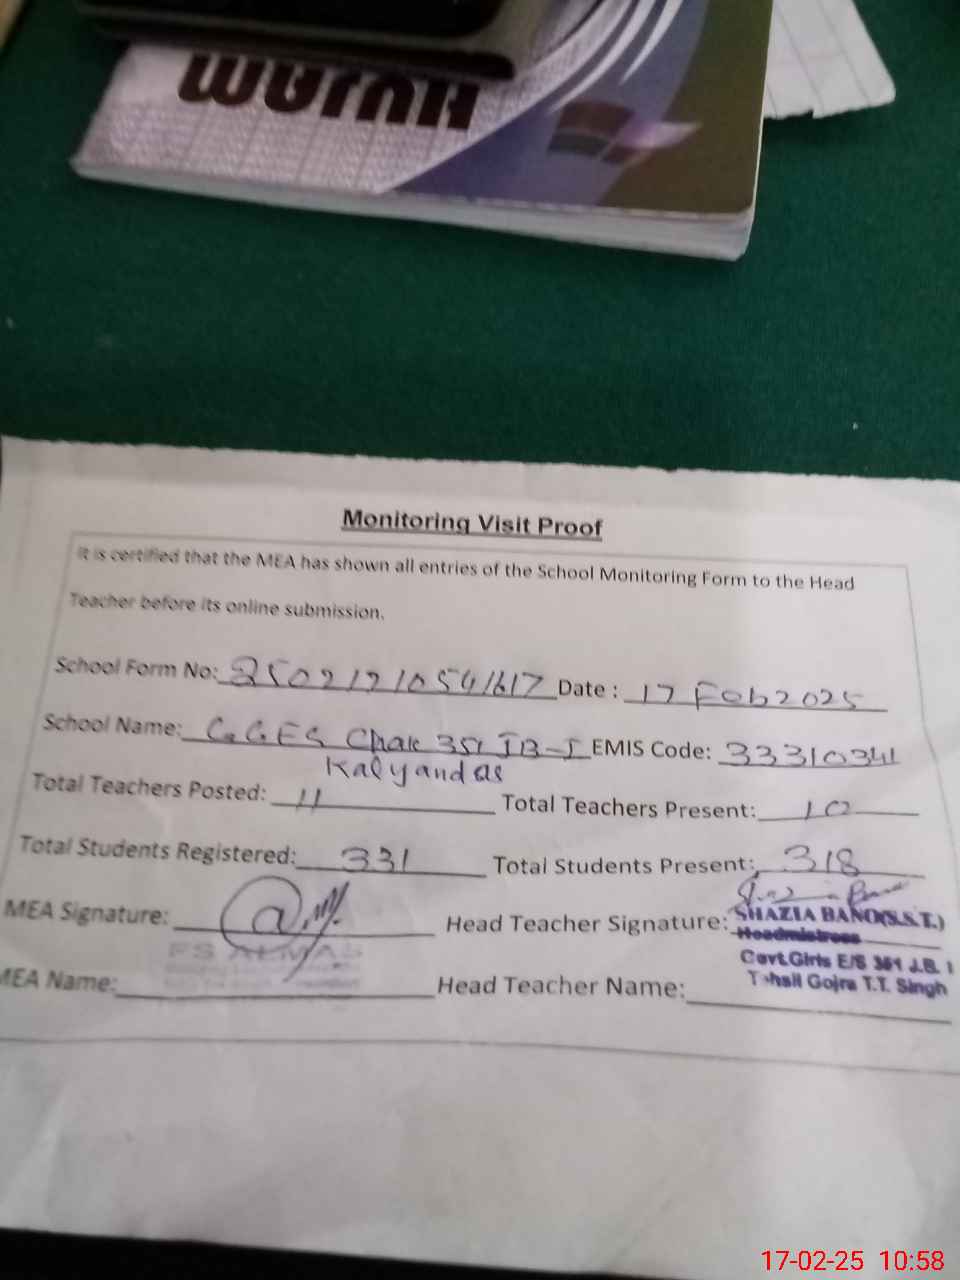 HUYAM
Monitoring Visit Proof
It is certified that the MEA has shown all entries of the School Monitoring Form to the Head
Teacher before its online submission.
School Form No: Date : 17 Feb 2025
School Name: G.GES Chak 351 JB-I EMIS Code: 33310341
Kalyandas
Total Teachers Posted: 11 Total Teachers Present: 10
Total Students Registered: 331 Total Students Present: 318
MEA Signature: Head Teacher Signature: SHAZIA BANO(S.S.T.)
Headmistress
Govt.Girls E/S 351 J.B. 1
MEA Name: Head Teacher Name: Tehsil Gojra T.T. Singh
17-02-25 10:58